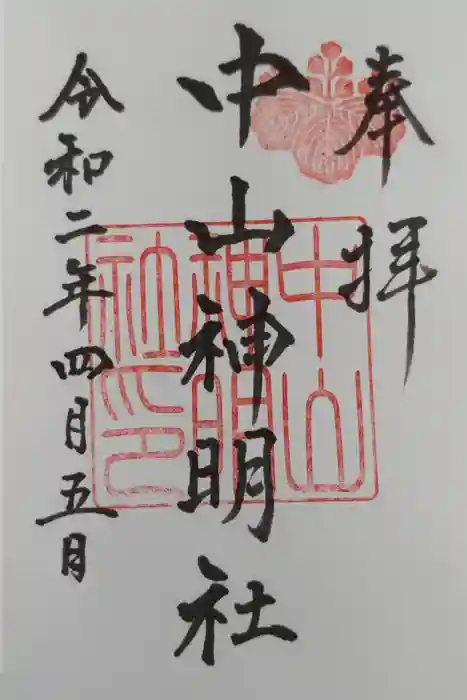 奉拝
中山神明社
中山神明社印
令和二年四月五日